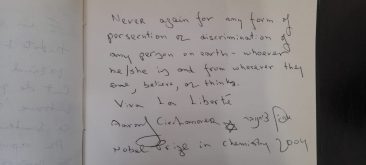 Never again for any form of
persecution or discrimination of
any person on earth - whoever
he/she is and from wherever they
come, believe, or think.
Viva La Liberté
Aaron J Ciechanover
Nobel Prize in chemistry 2004